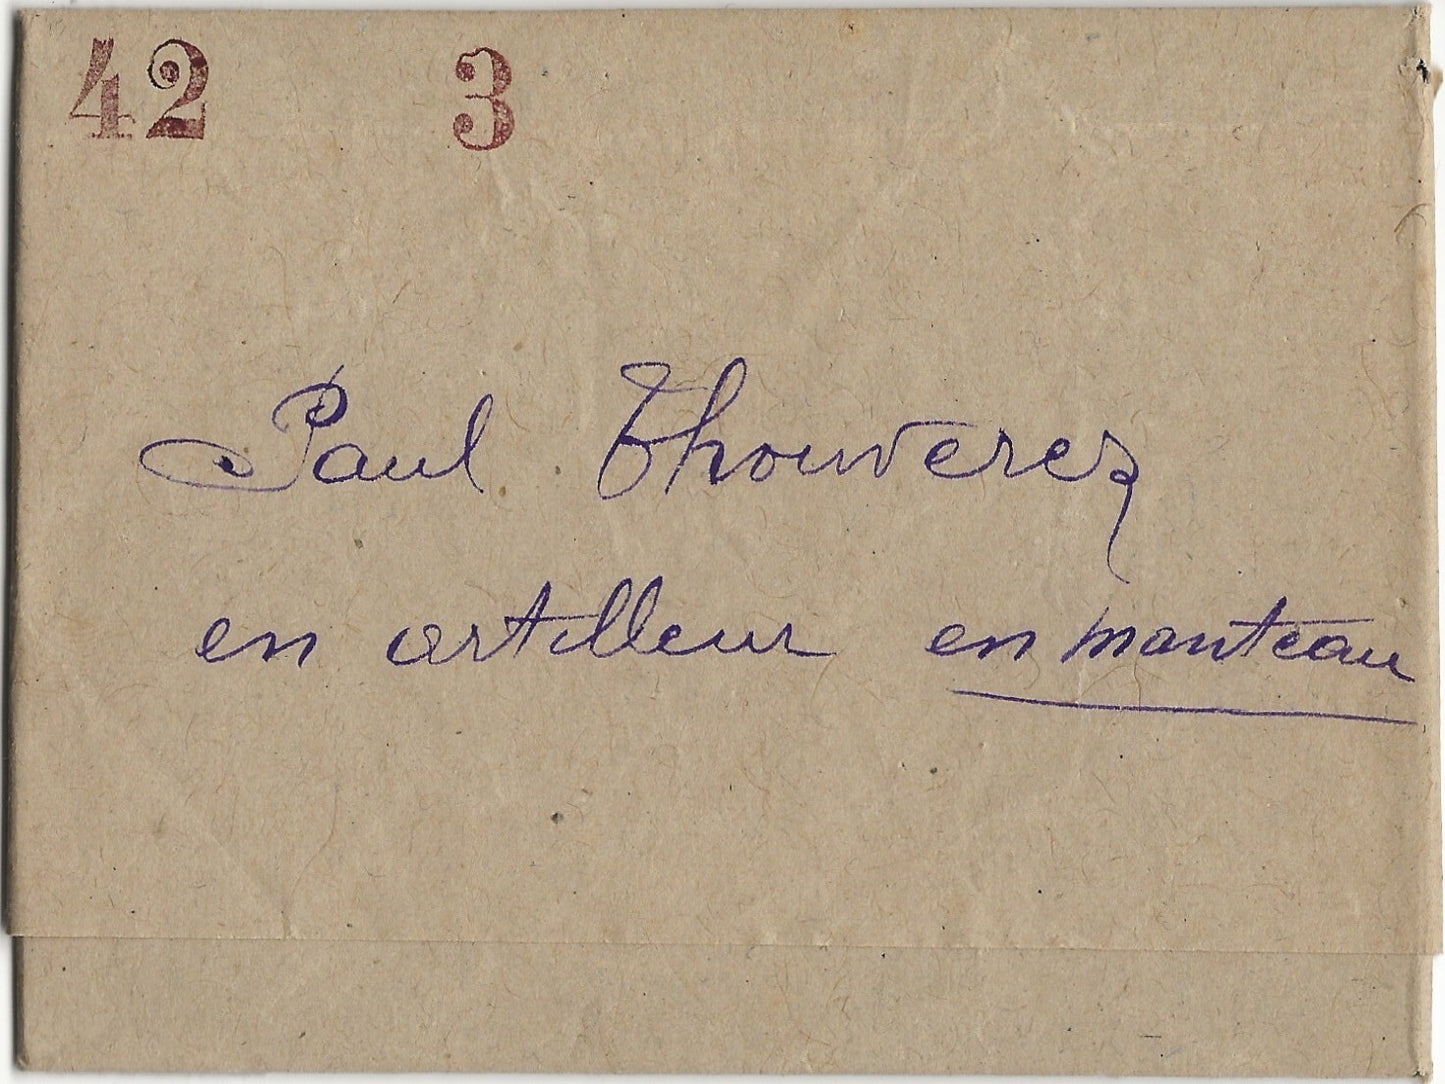 42 3
Paul Thouverez
en artilleur en manteau